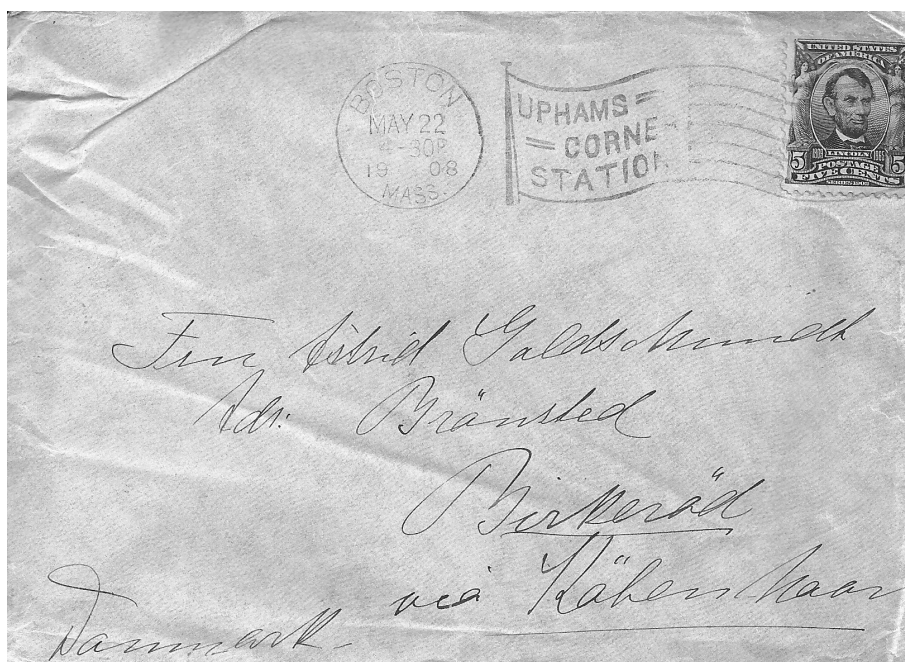 BOSTON
MAY 22
4-30P
19 08
MASS.
UPHAMS
CORNE
STATION
UNITED STATES
OF AMERICA
1809 LINCOLN 1865
5 POSTAGE 5
FIVE CENTS
SERIES 1902
Fru Astrid Goldschmidt
Adr: Brönsted
Birkeröd
via Köbenhavn
Danmark-